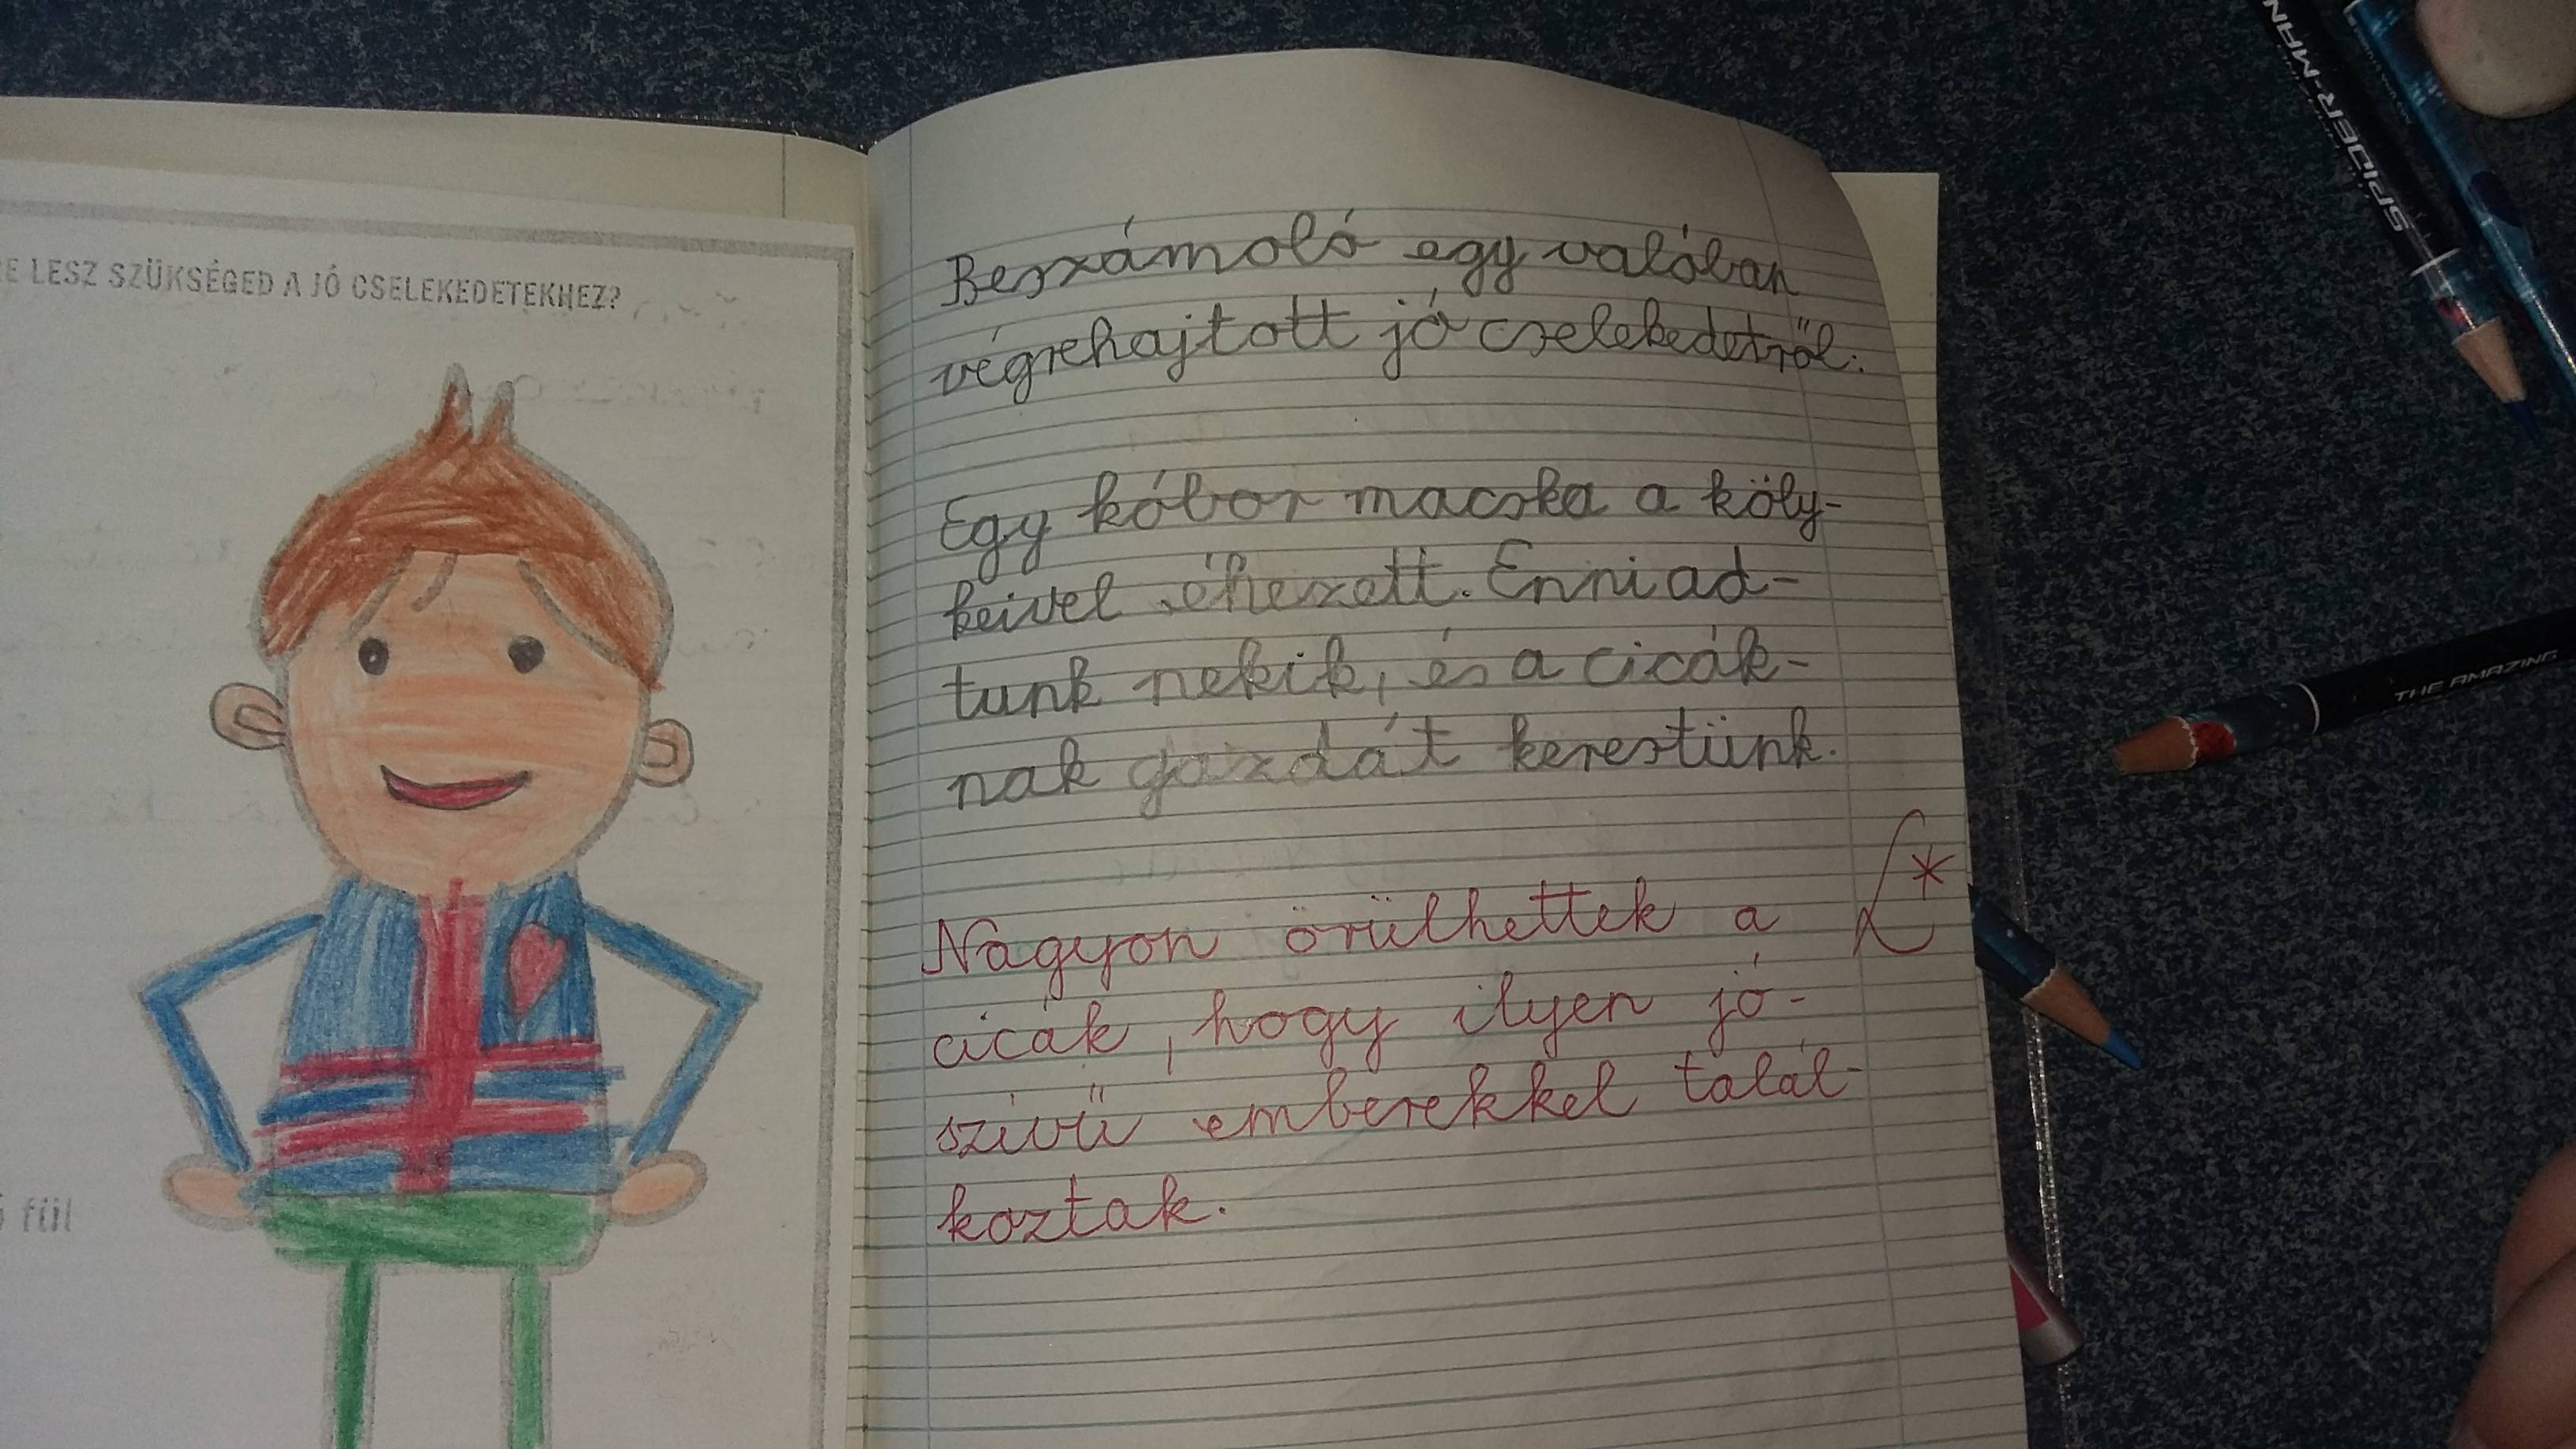 RE LESZ SZÜKSÉGED A JÓ CSELEKEDETEKHEZ?
fül
Beszámoló egy valóban
végrehajtott jó cselekedetről.
Egy kóbor macska a köly-
keivel éhezett. Enni ad-
tunk nekik, és a cicák-
nak gazdát kerestünk.
Nagyon örülhettek a
cicák, hogy ilyen jó-
szívű emberekkel talál-
koztak.
SPIDER-MAN
THE AMAZING